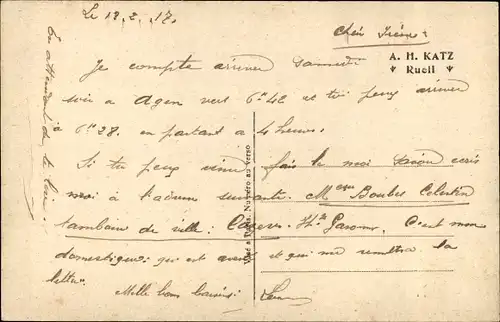 Le 18.2.17.
Cher Frère:
A. H. KATZ
Rueil
Je compte arriver samedi
soir a Agen vers 6h42 et tu peux arriver
à 6h28. en partant a 4 heures.
Si tu peux venir fais le moi savoir ecris
moi à l'adresse suivante. Mer Boubes Celestin
tambour de ville. Hte Garonne. C'est mon
domestique qui est avec et qui me remettra la
lettre.
Mille bons baisers.
En attendant de te voir
Visé à Paris. Numéro au verso